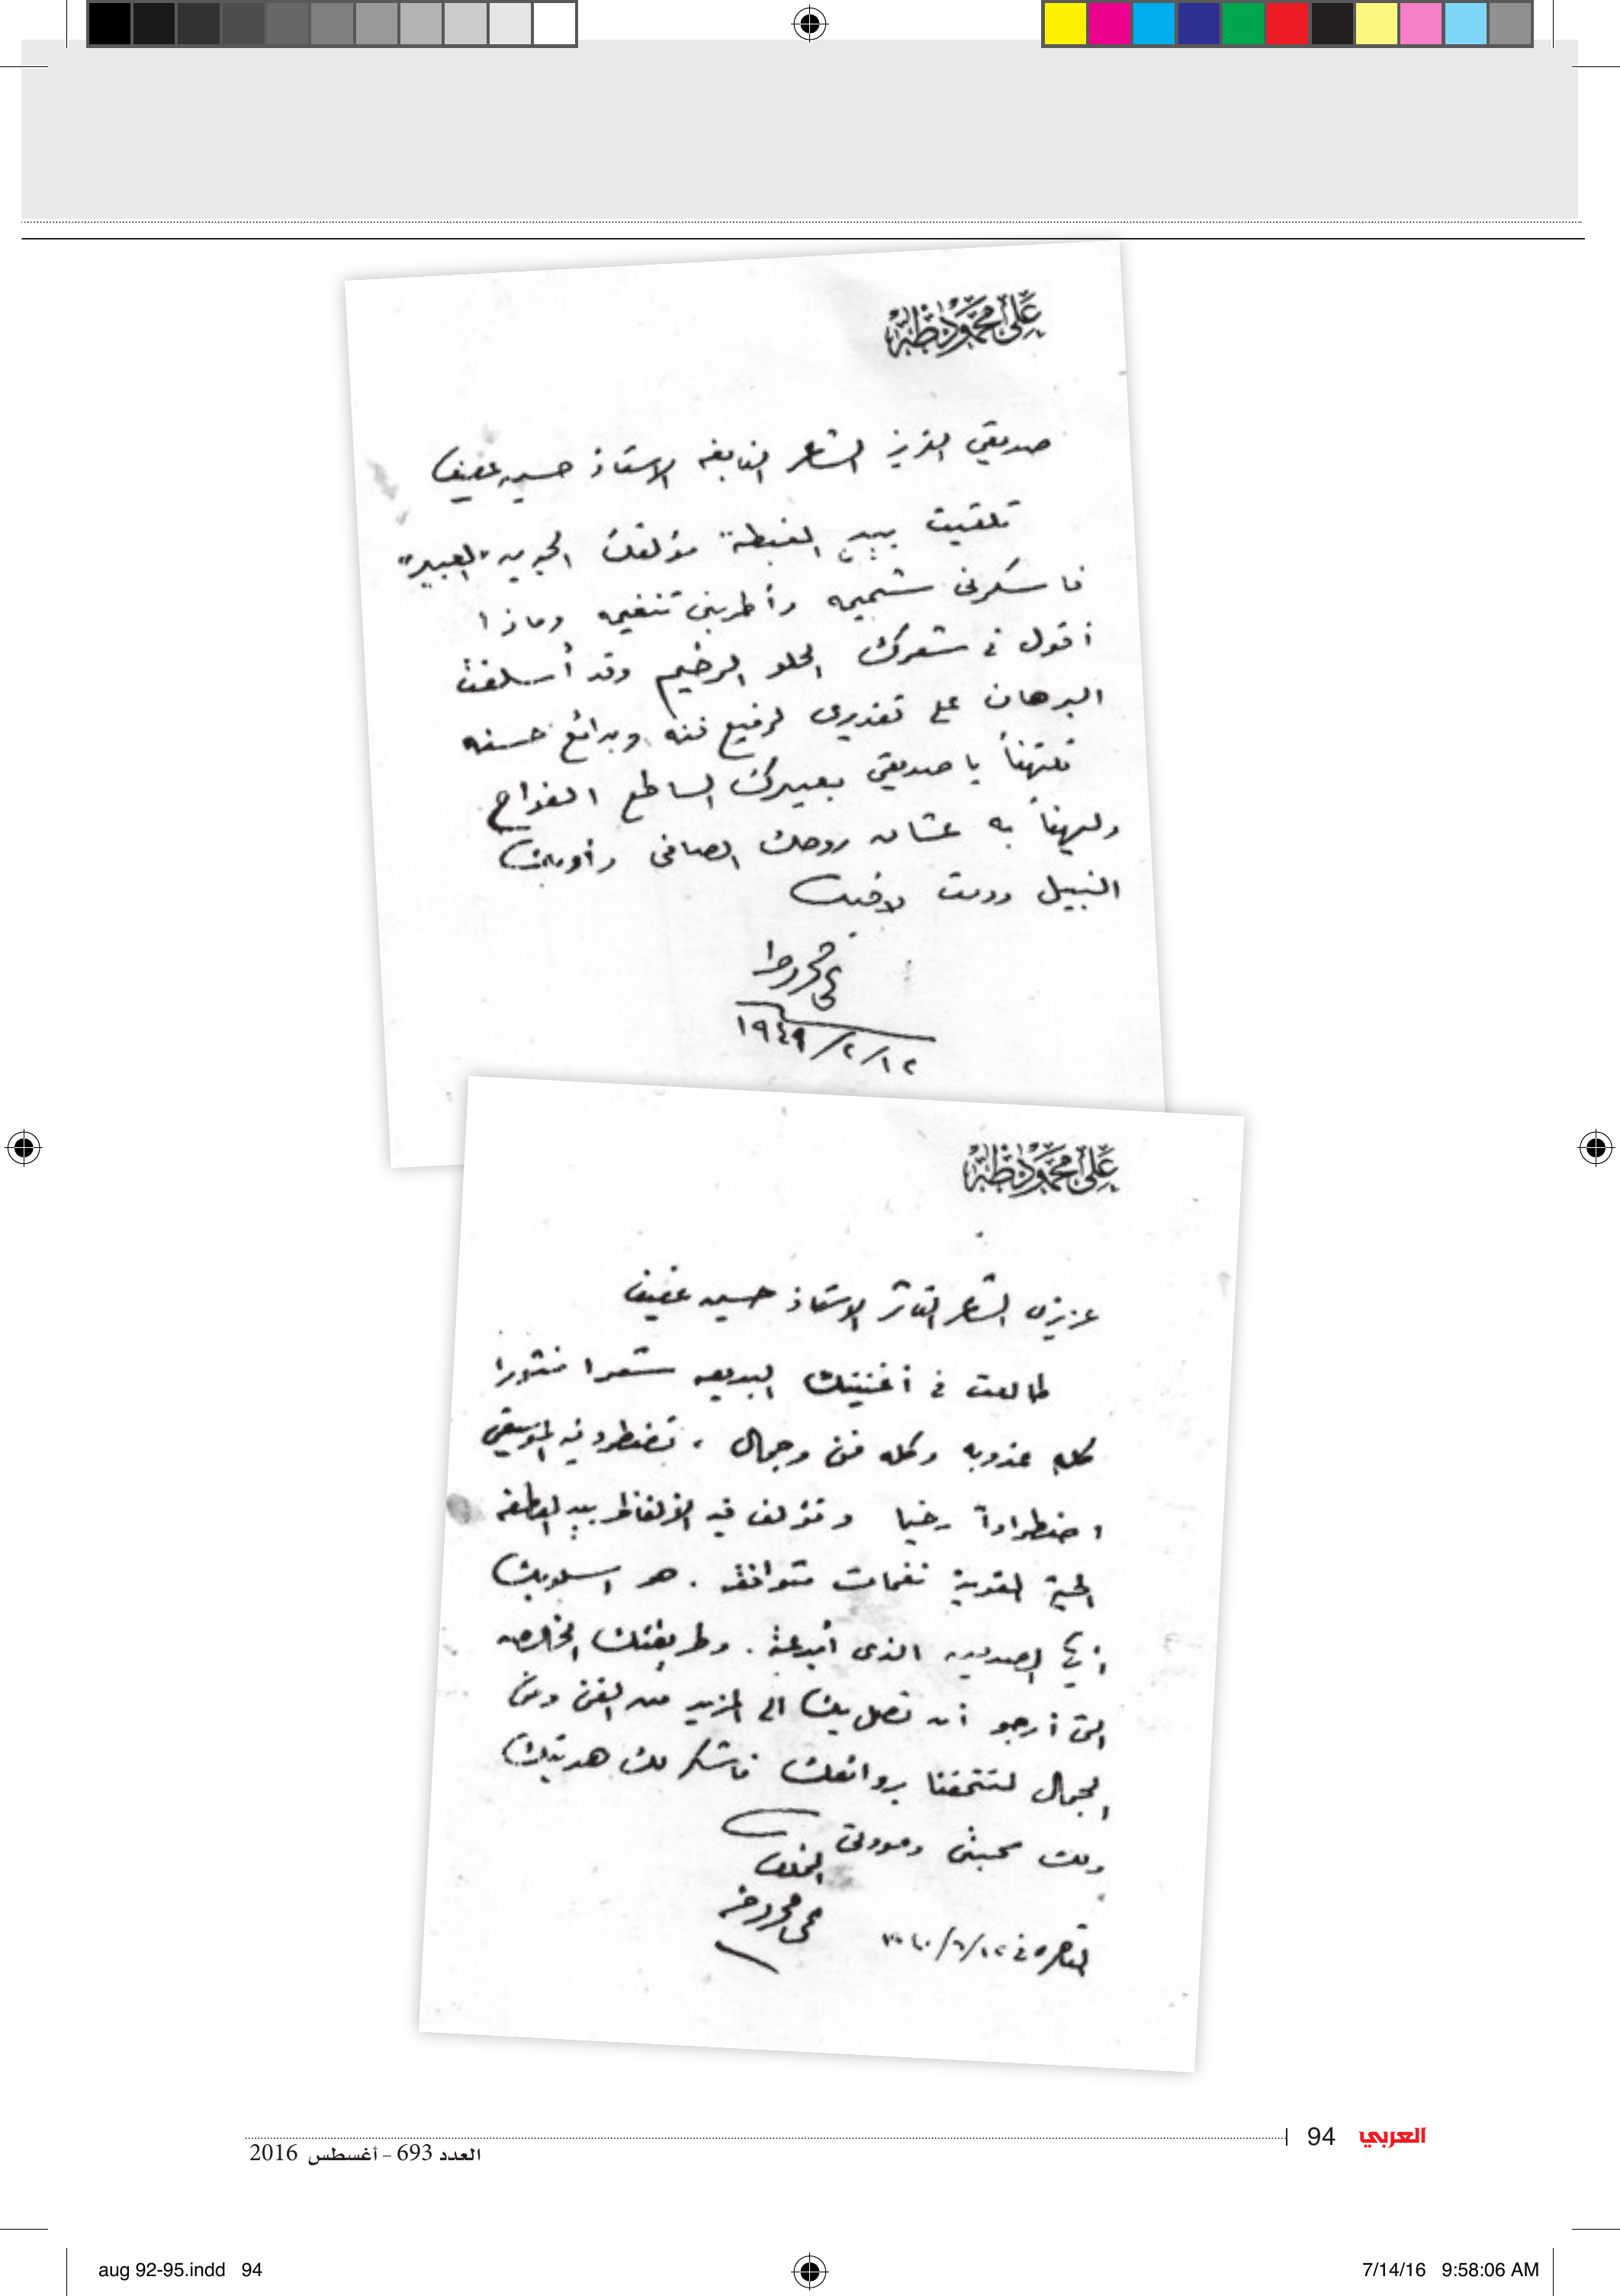 علي محمود طه
صديقي العزيز الشاعر النابغه الاستاذ حسين عفيف
تلقيت بيد الغبطة مؤلفك الجديد "العبير"
فاسكرنى شميمه وأطربنى تنغيمه وماذا
أقول فى شعرك الحلو الرخيم وقد أسلفت
البرهان على تقديرى لرفيع فنه وبدائع حسنه
فلتهنأ يا صديقي بعبيرك الساطع الفواح
وليهنأ به عشاق روحك الصافى وأدبك
النبيل ودمت لاخيك
على محمود طه
١٩٤٩/٢/١٢
علي محمود طه
عزيزى الشاعر الناثر الاستاذ حسين عفيف
طالعت فى أغنيتك البديعه شعرا منثورا
كله عذوبه وكله فن وجمال ، تضطرد فيه الموسيقى
اضطرادا رخيا وتؤلف فيه الألفاظ بين العاطفه
الحية القوية نغمات متوافقه . هو اسلوبك
أيها الصديق الذى أبدعته . وطريقتك الخالصه
التى أرجو أن تصل بك الى المزيد من الفن ومن
الجمال لتتحفنا بروائعك فاشكر لك هديتك
ولك محبتى ومودتى
المخلص
على محمود طه
القاهره فى
العربي 94
العدد 693 - أغسطس 2016
aug 92-95.indd 94 7/14/16 9:58:06 AM